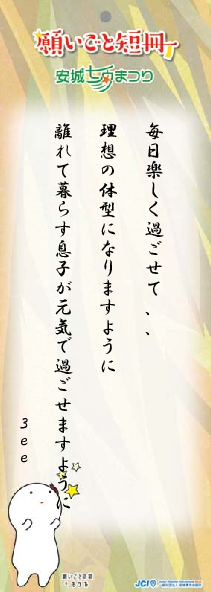 願いごと短冊
安城七夕まつり
毎日楽しく過ごせて、、
理想の体型になりますように
離れて暮らす息子が元気で過ごせますように
3ee
願いごと短冊
JCI